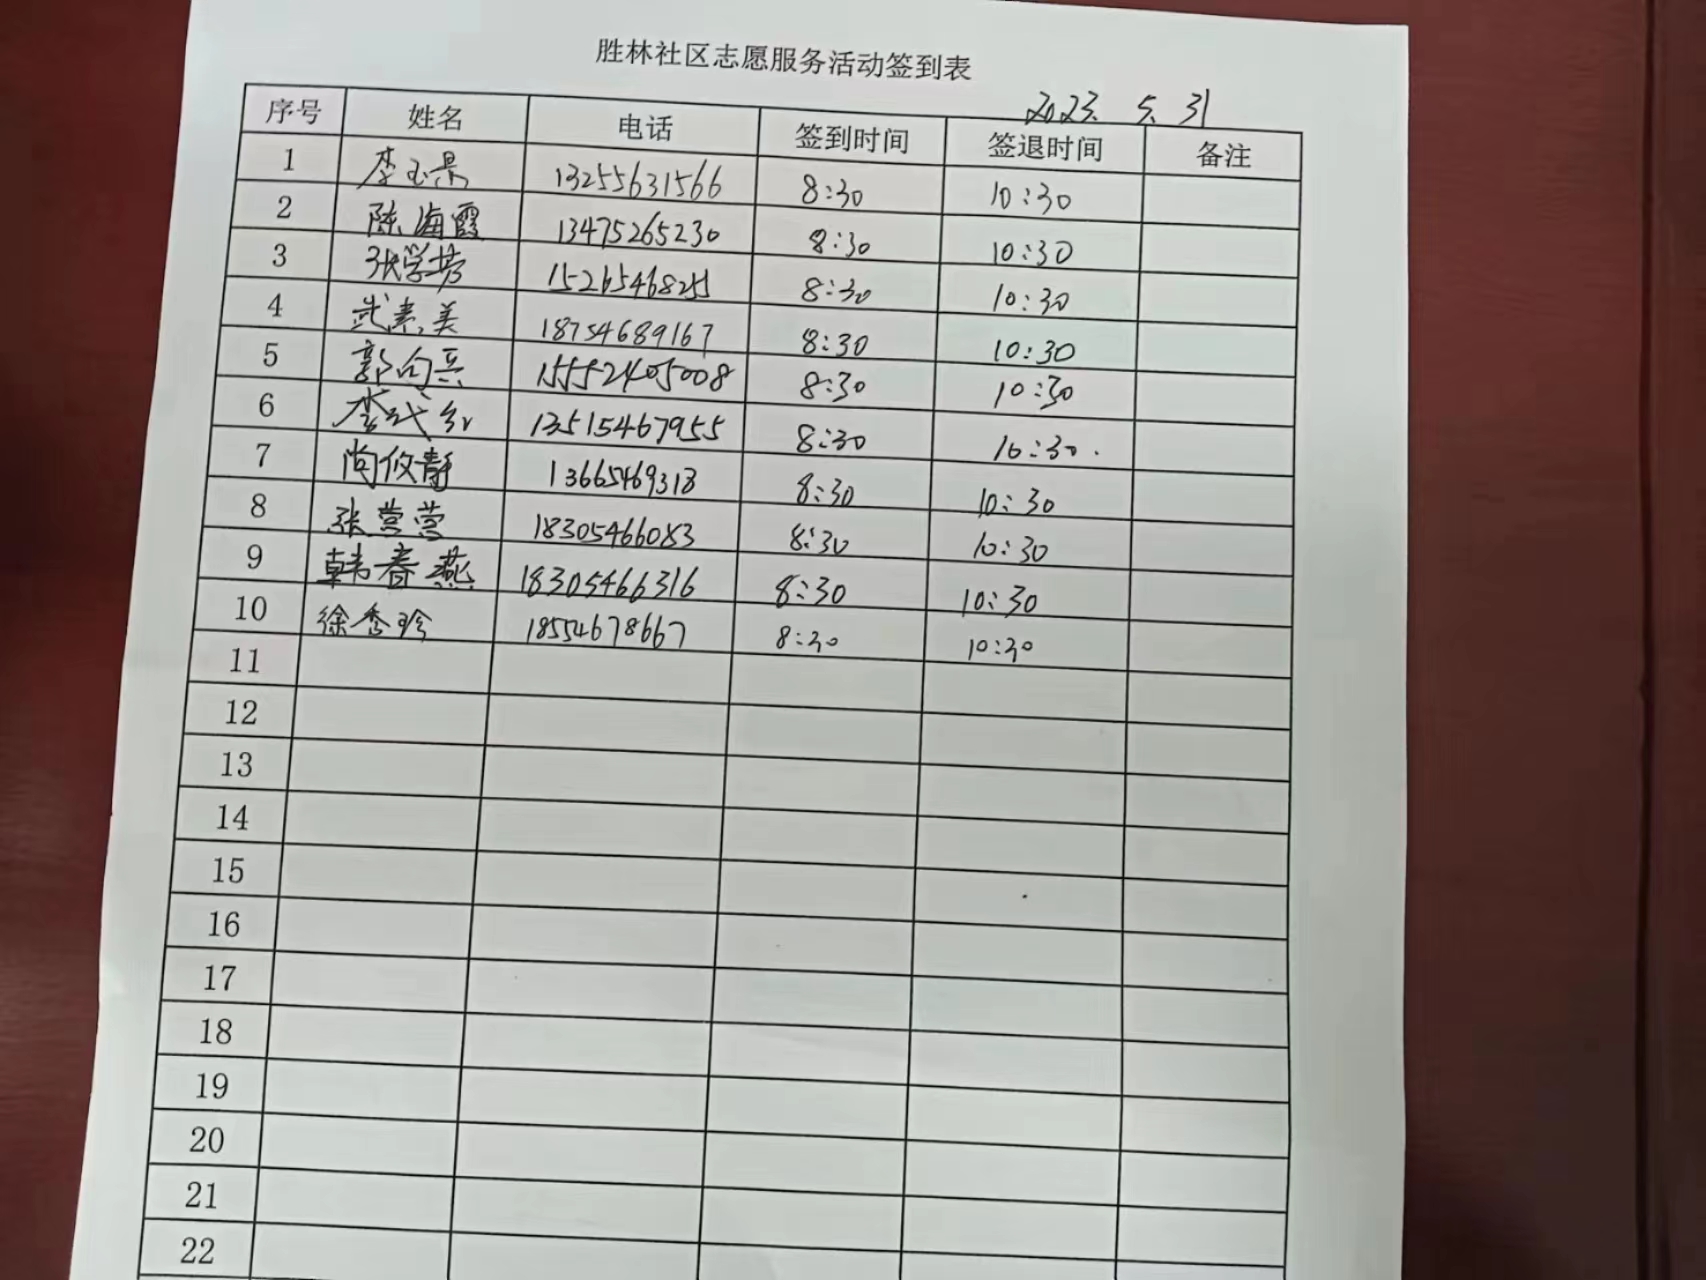 胜林社区志愿服务活动签到表
2023. 5. 31
序号 姓名 电话 签到时间 签退时间 备注
1 李玉景 13255631566 8:30 10:30
2 陈海霞 13475265230 8:30 10:30
3 张学芳 15265468255 8:30 10:30
4 武素美 18754689167 8:30 10:30
5 郭向兵 15552405008 8:30 10:30
6 李代红 13515467955 8:30 10:30.
7 尚攸静 13665469318 8:30 10:30
8 张营营 18305466083 8:30 10:30
9 韩春燕 18305466316 8:30 10:30
10 徐秀珍 18554678667 8:30 10:30
11
12
13
14
15
16
17
18
19
20
21
22